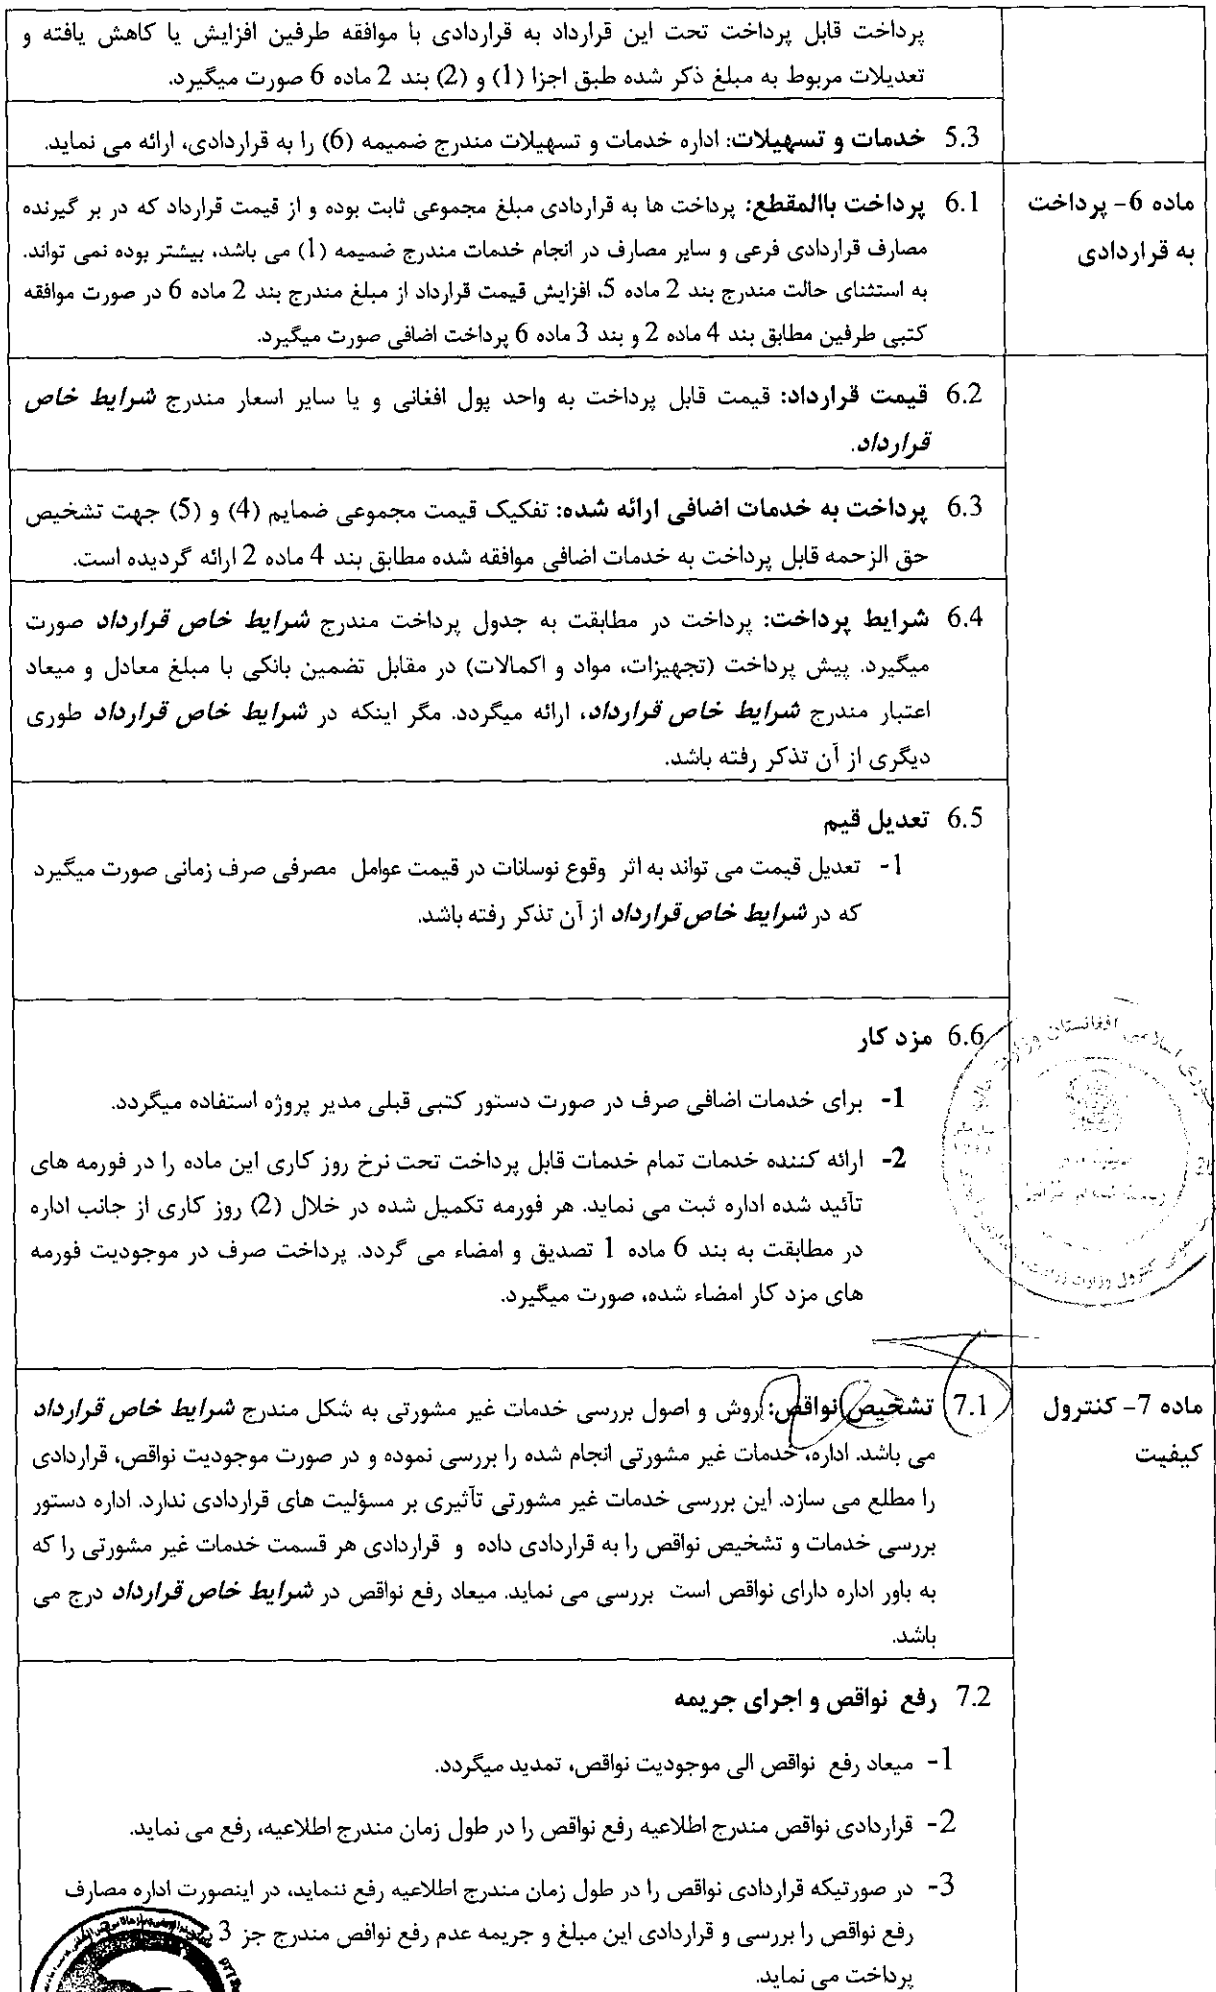 پرداخت قابل پرداخت تحت این قرارداد به قراردادی با موافقه طرفین افزایش یا کاهش یافته و
تعدیلات مربوط به مبلغ ذکر شده طبق اجزا (1) و (2) بند 2 ماده 6 صورت میگیرد.
5.3 خدمات و تسهیلات: اداره خدمات و تسهیلات مندرج ضمیمه (6) را به قراردادی، ارائه می نماید.
ماده 6- پرداخت
به قراردادی
6.1 پرداخت باالمقطع: پرداخت ها به قراردادی مبلغ مجموعی ثابت بوده و از قیمت قرارداد که در بر گیرنده
مصارف قراردادی فرعی و سایر مصارف در انجام خدمات مندرج ضمیمه (1) می باشد، بیشتر بوده نمی تواند.
به استثنای حالت مندرج بند 2 ماده 5، افزایش قیمت قرارداد از مبلغ مندرج بند 2 ماده 6 در صورت موافقه
کتبی طرفین مطابق بند 4 ماده 2 و بند 3 ماده 6 پرداخت اضافی صورت میگیرد.
6.2 قیمت قرارداد: قیمت قابل پرداخت به واحد پول افغانی و یا سایر اسعار مندرج شرایط خاص
قرارداد.
6.3 پرداخت به خدمات اضافی ارائه شده: تفکیک قیمت مجموعی ضمایم (4) و (5) جهت تشخیص
حق الزحمه قابل پرداخت به خدمات اضافی موافقه شده مطابق بند 4 ماده 2 ارائه گردیده است.
6.4 شرایط پرداخت: پرداخت در مطابقت به جدول پرداخت مندرج شرایط خاص قرارداد صورت
میگیرد. پیش پرداخت (تجهیزات، مواد و اکمالات) در مقابل تضمین بانکی با مبلغ معادل و میعاد
اعتبار مندرج شرایط خاص قرارداد، ارائه میگردد. مگر اینکه در شرایط خاص قرارداد طوری
دیگری از آن تذکر رفته باشد.
6.5 تعدیل قیم
1- تعدیل قیمت می تواند به اثر وقوع نوسانات در قیمت عوامل مصرفی صرف زمانی صورت میگیرد
که در شرایط خاص قرارداد از آن تذکر رفته باشد.
6.6 مزد کار
1- برای خدمات اضافی صرف در صورت دستور کتبی قبلی مدیر پروژه استفاده میگردد.
2- ارائه کننده خدمات تمام خدمات قابل پرداخت تحت نرخ روز کاری این ماده را در فورمه های
تائید شده اداره ثبت می نماید. هر فورمه تکمیل شده در خلال (2) روز کاری از جانب اداره
در مطابقت به بند 6 ماده 1 تصدیق و امضاء می گردد. پرداخت صرف در موجودیت فورمه
های مزد کار امضاء شده، صورت میگیرد.
ماده 7- کنترول
کیفیت
7.1 تشخیص نواقص: روش و اصول بررسی خدمات غیر مشورتی به شکل مندرج شرایط خاص قرارداد
می باشد. اداره، خدمات غیر مشورتی انجام شده را بررسی نموده و در صورت موجودیت نواقص، قراردادی
را مطلع می سازد. این بررسی خدمات غیر مشورتی تأثیری بر مسؤلیت های قراردادی ندارد. اداره دستور
بررسی خدمات و تشخیص نواقص را به قراردادی داده و قراردادی هر قسمت خدمات غیر مشورتی را که
به باور اداره دارای نواقص است بررسی می نماید. میعاد رفع نواقص در شرایط خاص قرارداد درج می
باشد.
7.2 رفع نواقص و اجرای جریمه
1- میعاد رفع نواقص الی موجودیت نواقص، تمدید میگردد.
2- قراردادی نواقص مندرج اطلاعیه رفع نواقص را در طول زمان مندرج اطلاعیه، رفع می نماید.
3- در صورتیکه قراردادی نواقص را در طول زمان مندرج اطلاعیه رفع ننماید، در اینصورت اداره مصارف
رفع نواقص را بررسی و قراردادی این مبلغ و جریمه عدم رفع نواقص مندرج جز 3
پرداخت می نماید.